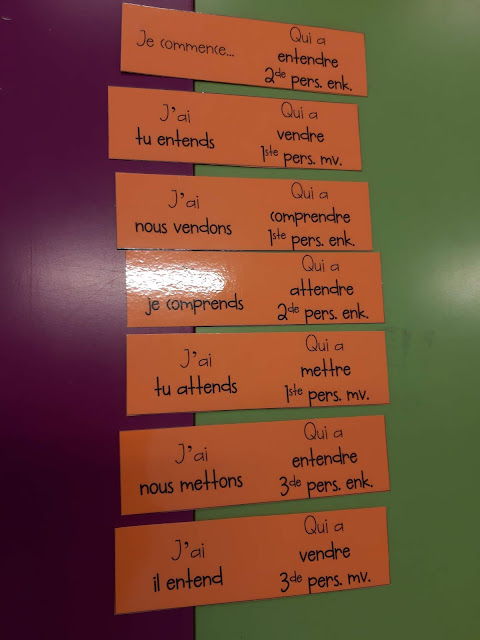 Je commence...
Qui a
entendre
2de pers. enk.
J'ai
tu entends
Qui a
vendre
1ste pers. mv.
J'ai
nous vendons
Qui a
comprendre
1ste pers. enk.
je comprends
Qui a
attendre
2de pers. enk.
J'ai
tu attends
Qui a
mettre
1ste pers. mv.
J'ai
nous mettons
Qui a
entendre
3de pers. enk.
J'ai
il entend
Qui a
vendre
3de pers. mv.